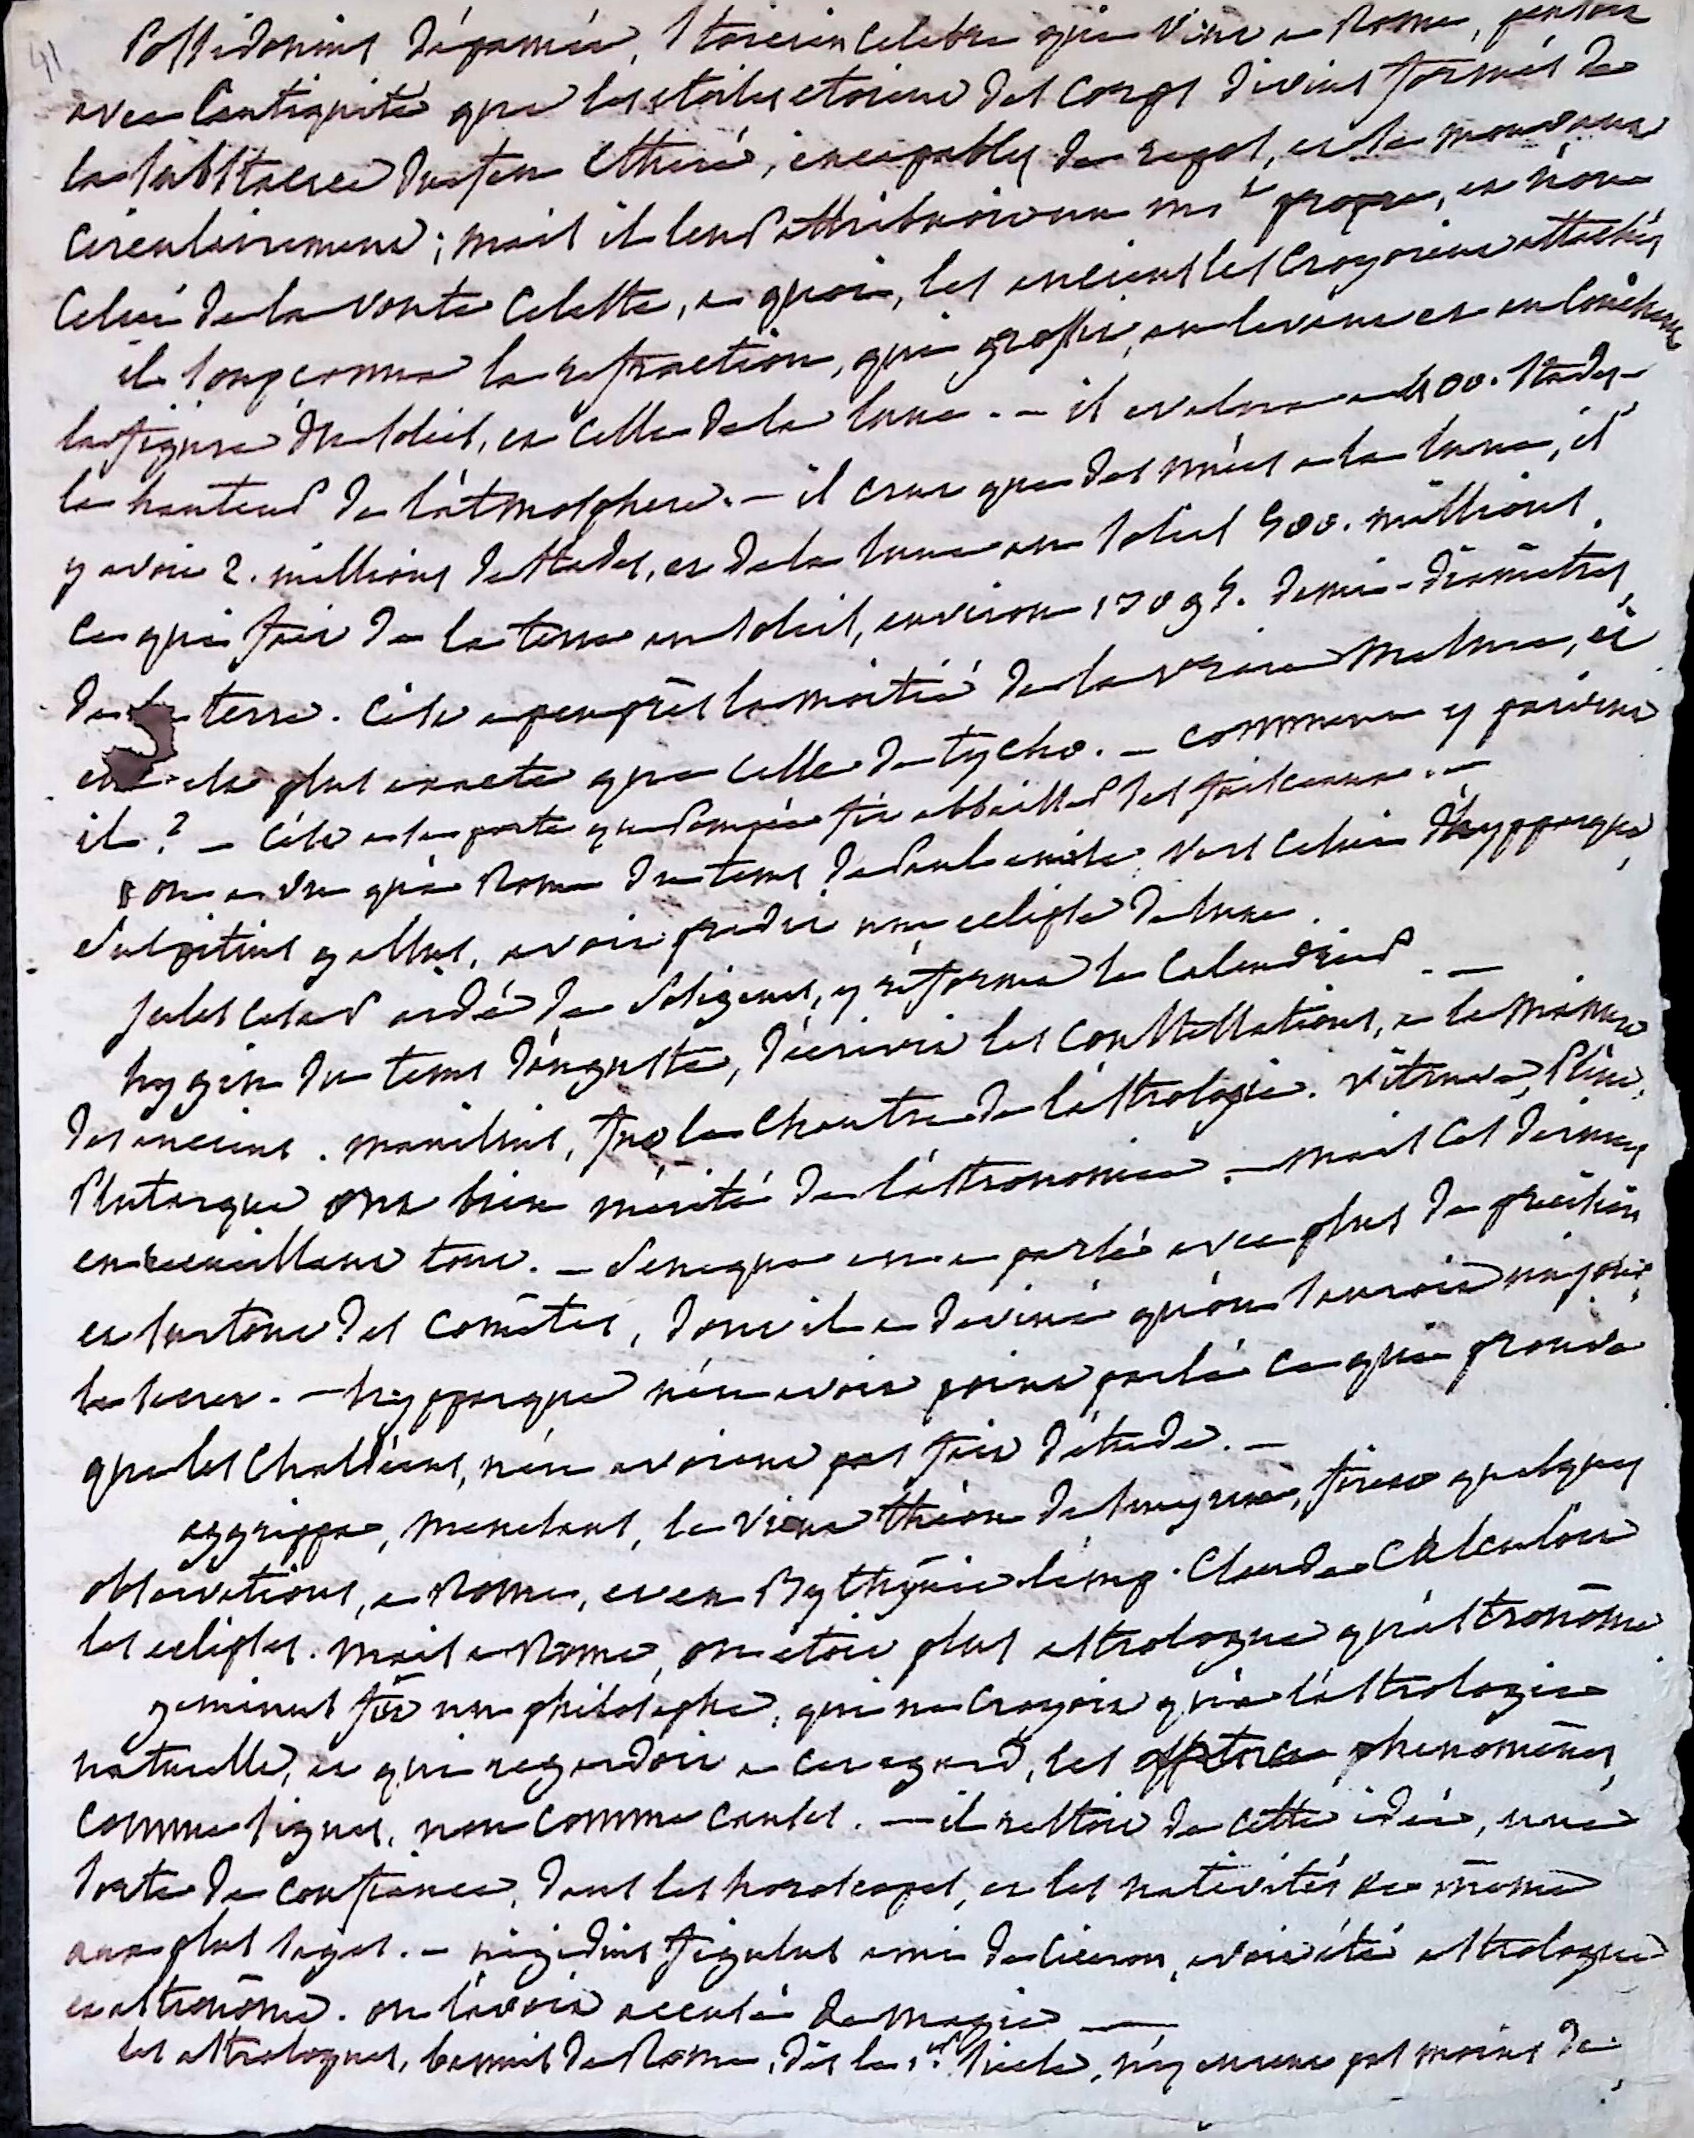 41
Possidonius d'apamée, stoicien celebre qui vint a Rome, pensoit
avec l'antiquité que les etoiles etoient des corps divins formés de
la substance du feu etheré, incapables de repos, et se mouvant
circulairement; mais il leur attribuoit un mt propre, et non
celui de la voute celeste, a quoi, les anciens les croyoient attachés
il soupconna la refraction, qui grossit, au levant et au couchant
la figure du soleil, et celle de la lune. - il evalua a 400. stades
la hauteur de l'atmosphere. - il crut que des nuées a la lune, il
y avoit 2. millions de stades, et de la lune au soleil 500. millions.
ce qui fait de la terre au soleil, environ demi-diamètres
de la terre. C'est a peu près la moitié de la vraie mesure, et
elle est plus exacte que celle de tycho. - comment y parvint
il? - C'est a sa porte que Pompée fit abbaisser les faisceaux. -
on a vu qu'a Rome du tems de Paul emile, vers celui d'hypparque
Sulpitius gallus, avoit predit une eclipse de lune.
Jules Cesar aidé de Sosigenes, y réforma le calendrier. -
hygin du tems d'auguste, décrivit les constellations, a la manière
des anciens. manilius, fut le chantre de l'astrologie. vitruve, Pline,
Plutarque ont bien mérité de l'astronomie. - mais ces derniers
en recueillant tout. - Seneque en a parlé avec plus de précision
et surtout des comètes, dont il a deviné qu'on sauroit un jour
le secret. - hypparque n'en avoit point parlé ce qui prouve
que les Chaldéens, n'en avoient pas fait d'étude. -
aggrippa, menelaus, le vieux théon de smyrne, firent quelques
observations, a Rome, et en Bythinie l'emp. Claude calculoit
les eclipses. mais a Rome, on etoit plus astrologue qu'astronôme
geminus fut un philosophe, qui ne croyoit qu'a l'astrologie
naturelle, et qui regardoit a cet egard, les phenomènes,
comme signes, non comme causes. - il restoit de cette idée, une
sorte de confiance, dans les horoscopes, et les nativités même
aux plus sages. - nigidius figulus ami de ciceron, avoit été astrologue
et astronôme. on l'avoit accusé de magie -
les astrologues, bannis de Rome, dès le 1er siecle, n'y eurent pas moins de